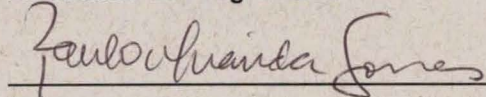 Paulo Miranda Gomes